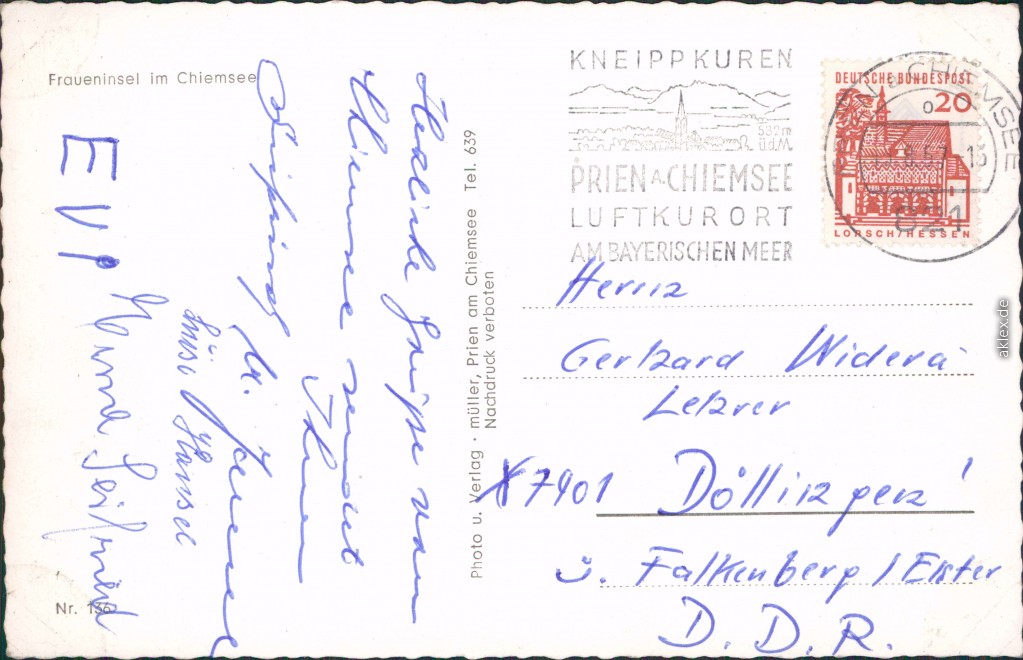 Fraueninsel im Chiemsee
Herzliche Grüße vom
Chiemsee sendet
Ihnen
EVP
Luise Hänsel
Nr. 156
Photo u. Verlag · müller, Prien am Chiemsee Tel. 639
Nachdruck verboten
KNEIPPKUREN
532m
ü.d.M.
PRIEN A. CHIEMSEE
LUFTKURORT
AM BAYERISCHEN MEER
DEUTSCHE BUNDESPOST
20
LORSCH/HESSEN
CHIEMSEE
821
Herrn
Gerhard Widera
Lehrer
X7901 Döllingen!
ü. Falkenberg/Elster
D.D.R.
aklex.de